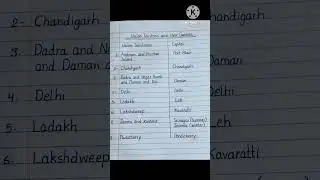 Union Territories and their Capitals
Union Territories Capital
1- Andaman and Nicobar Island Port Blair
2- Chandigarh Chandigarh
3- Dadra and Nagar Haveli and Daman and Diu Daman
4- Delhi Delhi
5- Ladakh Leh
6- Lakshdweep Kavaratti
7- Jammu and Kashmir Srinagar (Summer) Jammu (winter)
8- Puducherry Pondicherry
2- Chandigarh
Dadra and N
and Daman a
4. Delhi
5. Ladakh
6. Lakshdweep
Leh
Kavaratti